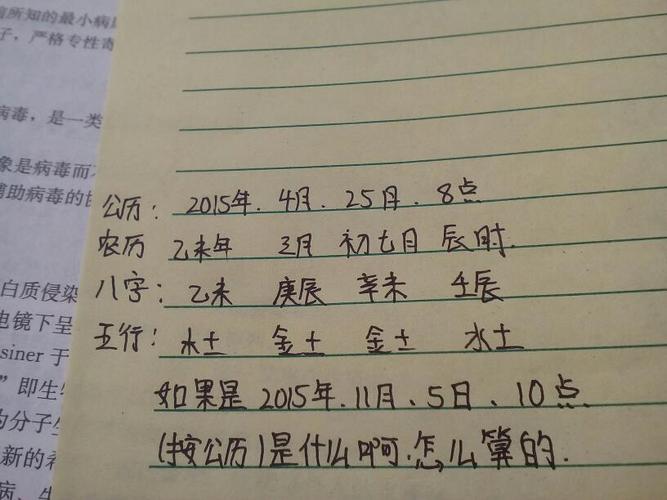 前所知的最小病
子，严格专性寄
病毒，是一类
象是病毒而
辅助病毒的
白质侵染
电镜下呈
siner 于
”即生
为分子生
新的
病、生
公历：2015年.4月.25日.8点
农历 乙未年 三月 初七日 辰时.
八字：乙未 庚辰 辛未 壬辰
五行：水土 金土 金土 水土
如果是2015年.11月、5日、10点
(按公历)是什么啊.怎么算的.